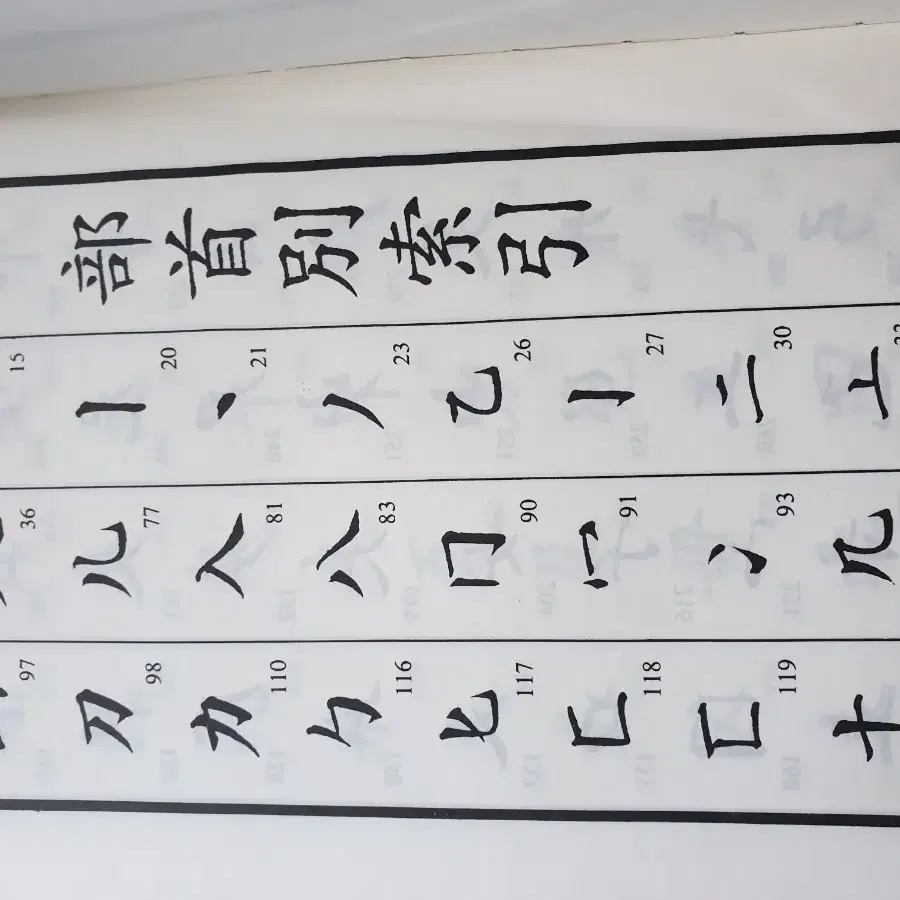 部首別索引
15 丨 20 丶 21 丿 23 乙 26 亅 27 二 30 亠
36 儿 77 入 81 八 83 冂 90 冖 91 冫 93 几
97 刀 98 力 110 勹 116 匕 117 匚 118 匸 119 十